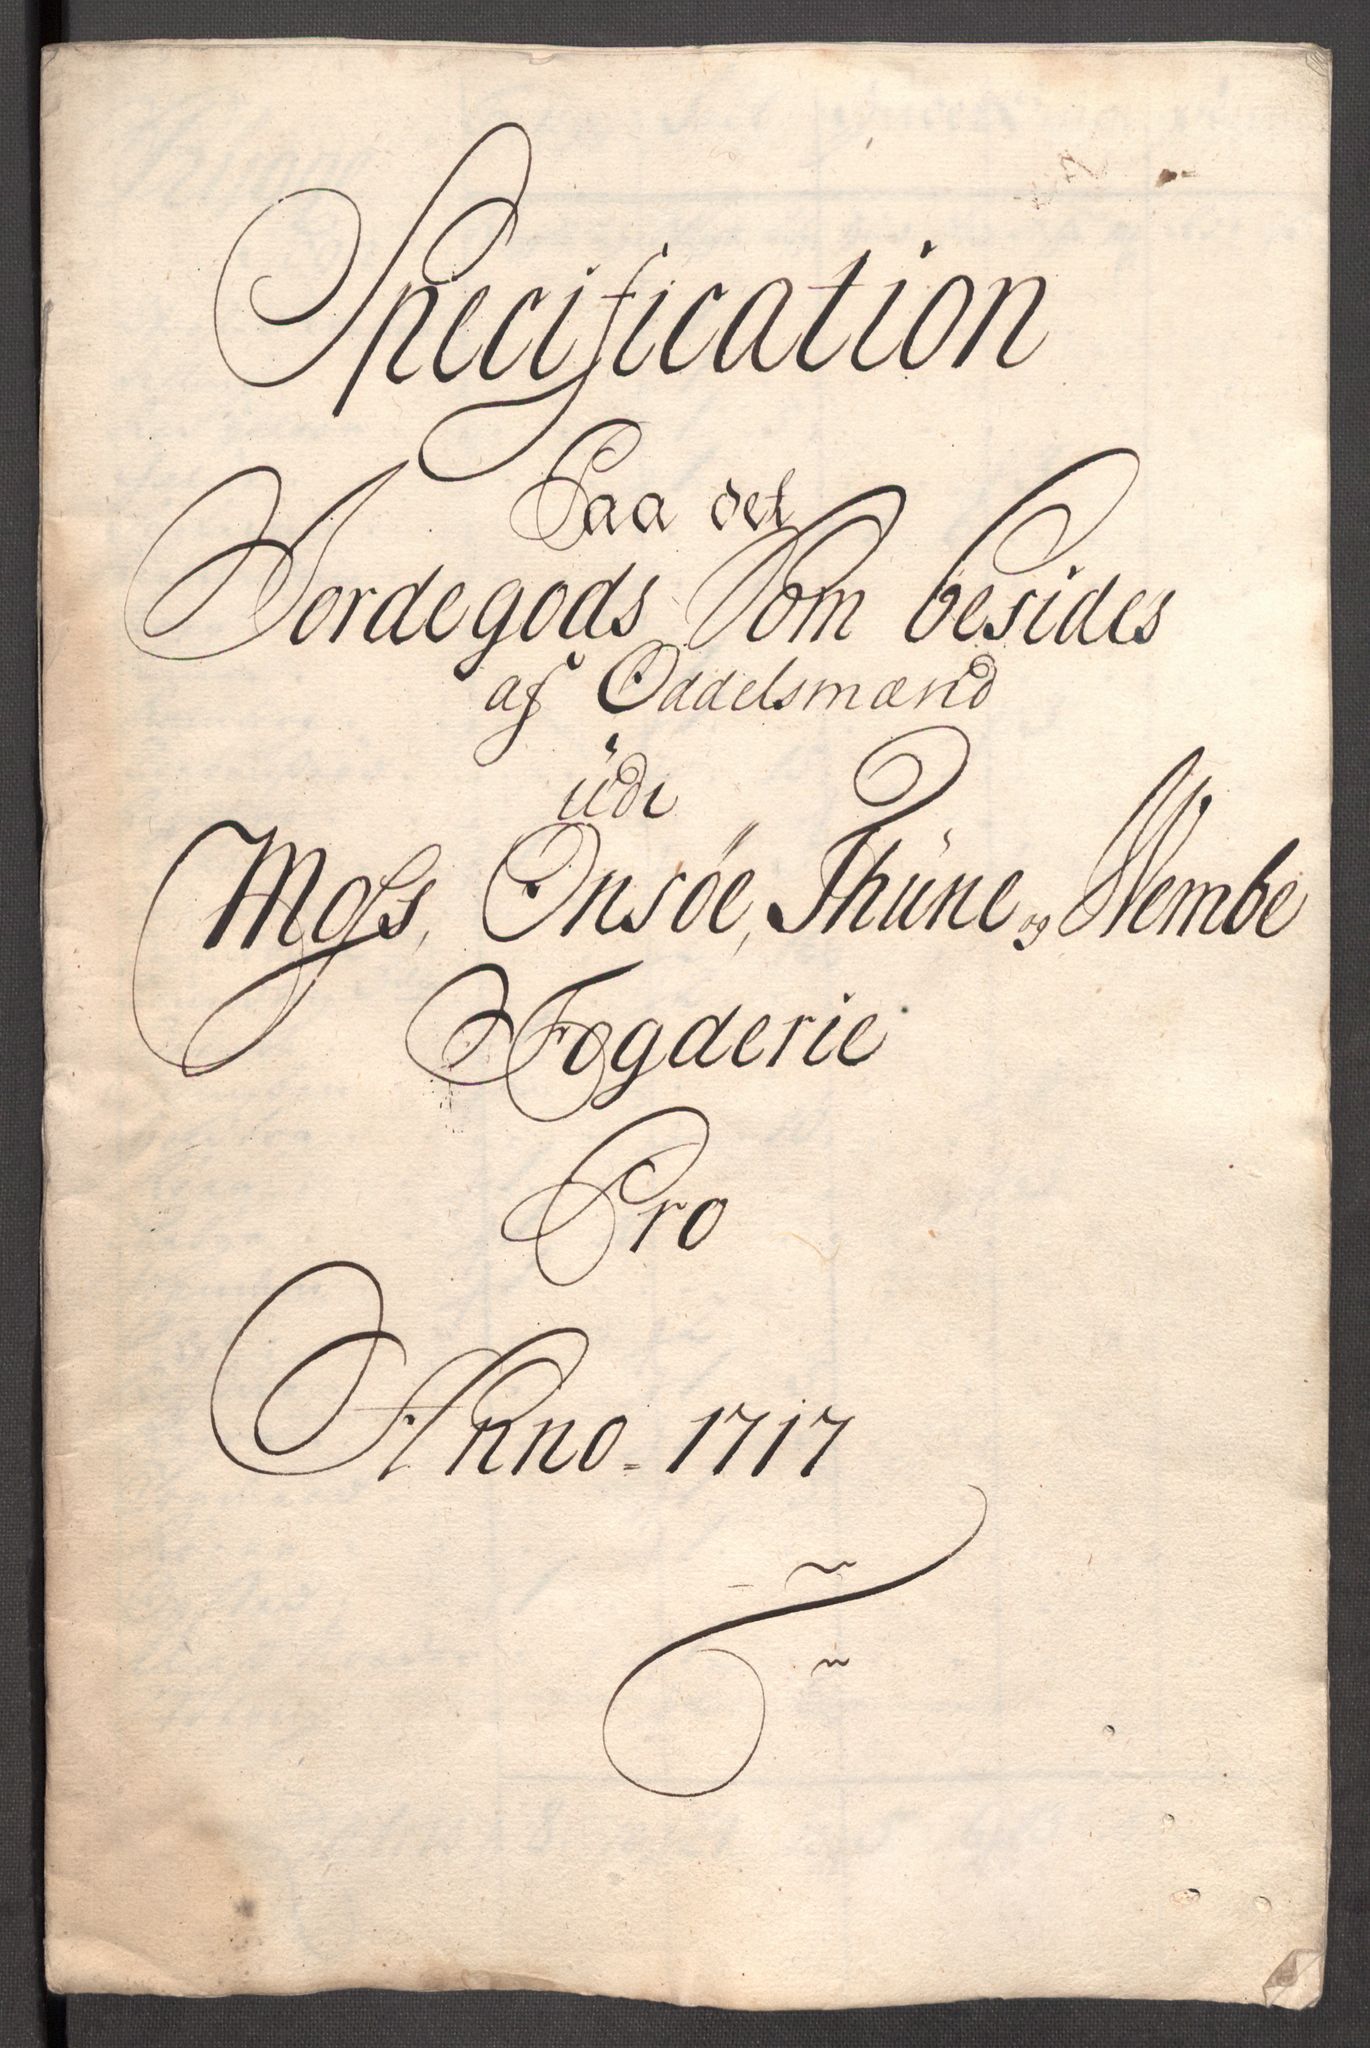 Specification
Paa det
Jordegods Som besides
af Oddelsmænd
üdi
Moss, Onsöe, Thüne og Wembe
Fogderie
Pro
Anno 1717